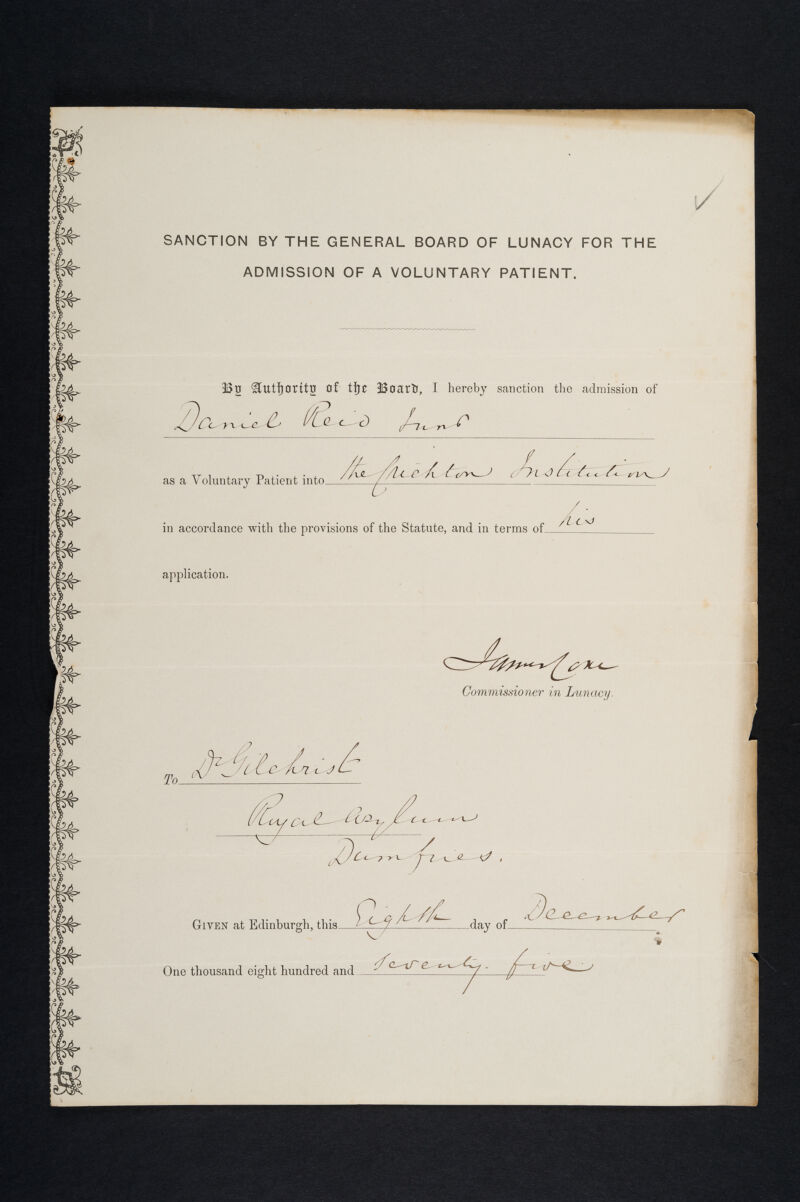 SANCTION BY THE GENERAL BOARD OF LUNACY FOR THE
ADMISSION OF A VOLUNTARY PATIENT.
By Authority of the Board, I hereby sanction the admission of
Daniel Reid Junr
as a Voluntary Patient into the Crichton Institution
in accordance with the provisions of the Statute, and in terms of his
application.
James Coxe
Commissioner in Lunacy.
To Dr Gilchrist
Royal Asylum
Dumfries.
GIVEN at Edinburgh, this Eighth day of December
One thousand eight hundred and seventy-five